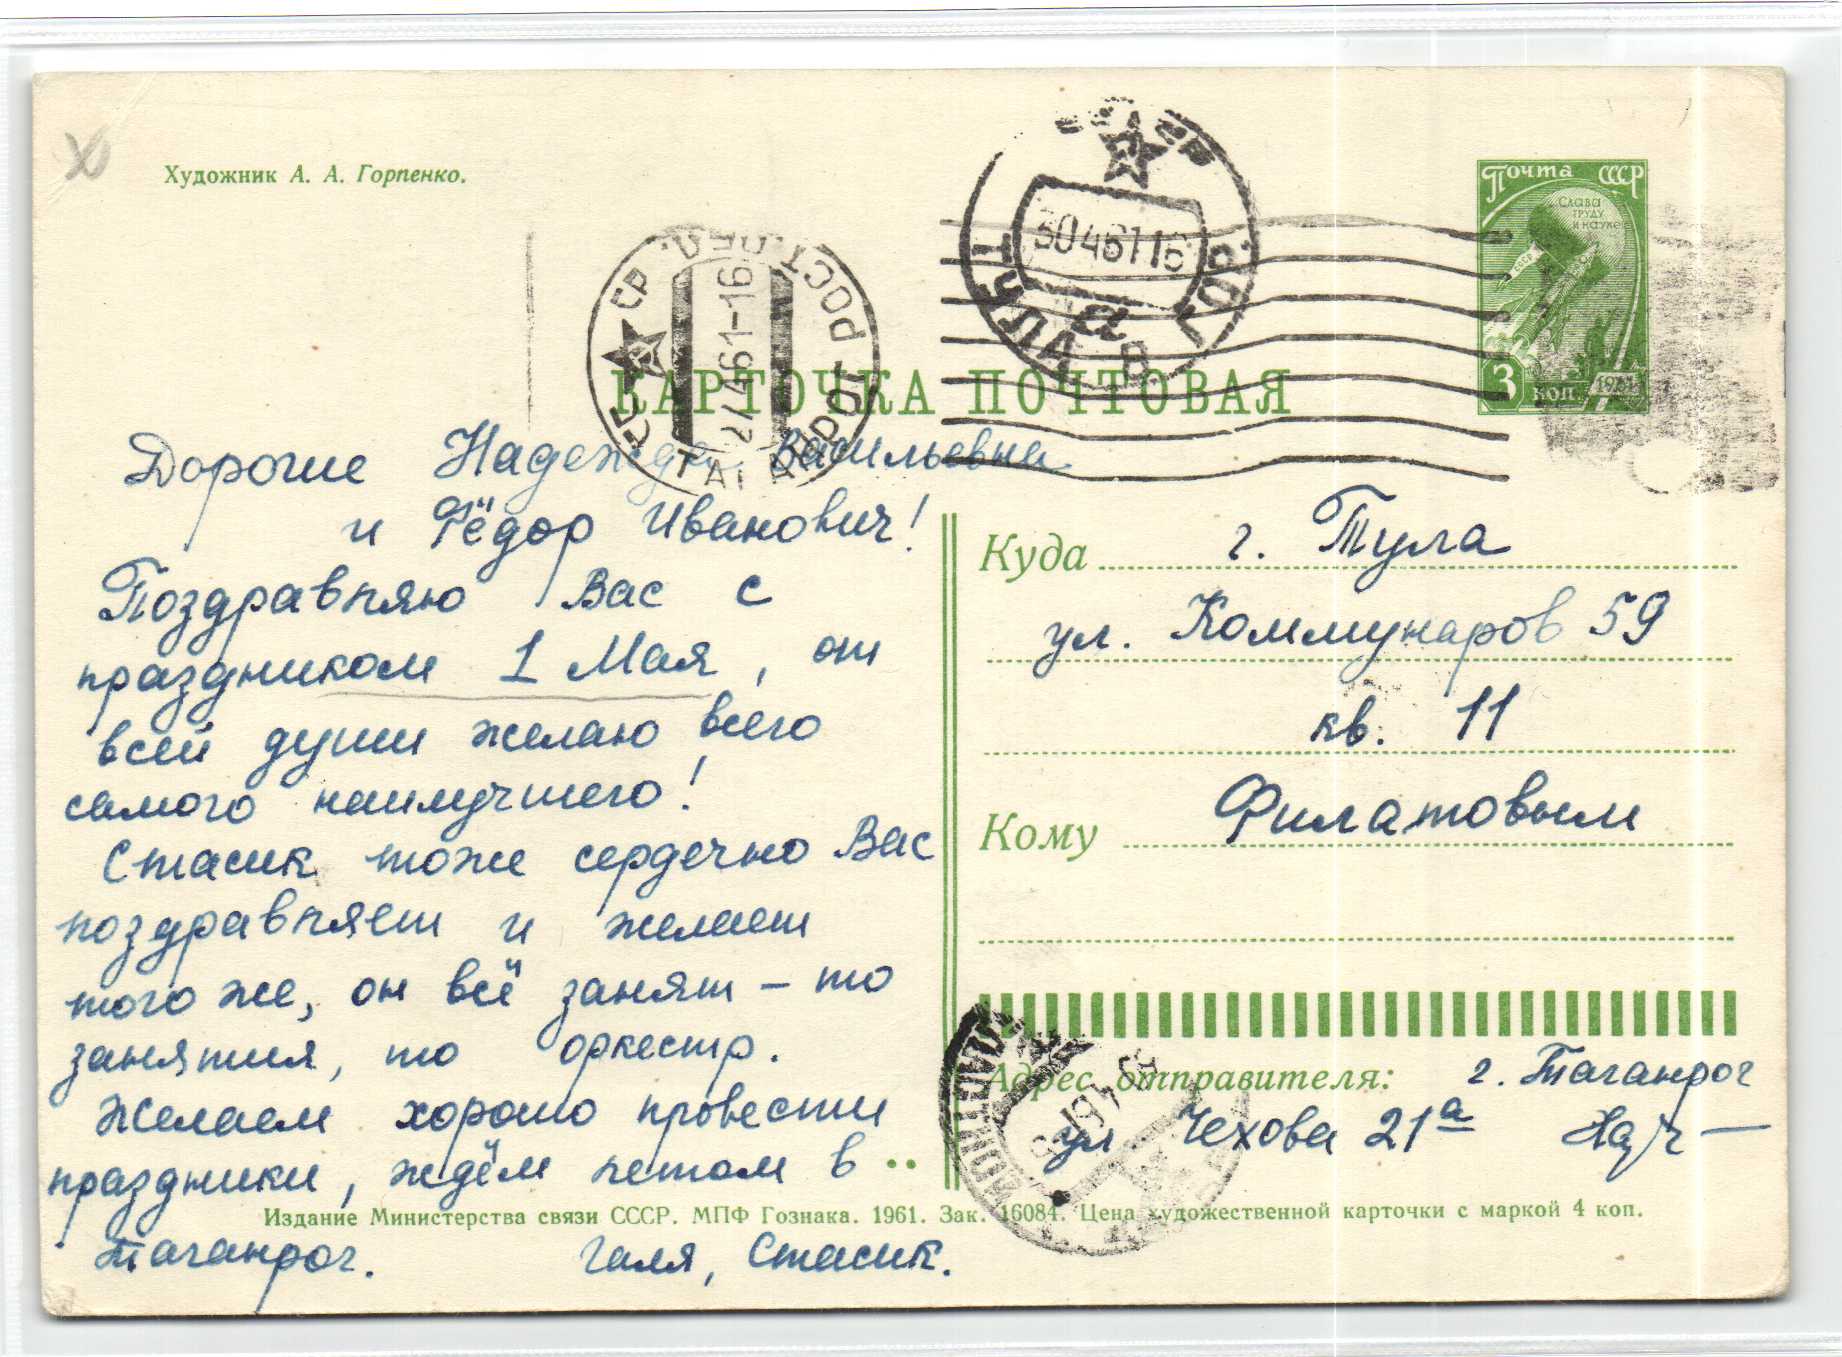 Художник А. А. Горпенко.
Почта СССР
Слава
труду
и науке
СССР
3 коп. 1961
СССР ТУЛА ПОЧ.
30 4 61 16
а
РОСТ. ОБЛ.
27 4 61-16
ТАГАНРОГ
КАРТОЧКА ПОЧТОВАЯ
Дорогие Надежда Васильевна
и Фёдор Иванович!
Поздравляю Вас с
праздником 1 Мая, от
всей души желаю всего
самого наилучшего!
Стасик тоже сердечно Вас
поздравляет и желает
того же, он всё занят – то
занятия, то оркестр.
Желаем хорошо провести
праздники, ждём летом в
Таганрог. Галя, Стасик.
Куда г. Тула
ул. Коммунаров 59
кв. 11
Кому Филатовым
Адрес отправителя: г. Таганрог
ул Чехова 21а
Издание Министерства связи СССР. МПФ Гознака. 1961. Зак. 16084. Цена художественной карточки с маркой 4 коп.